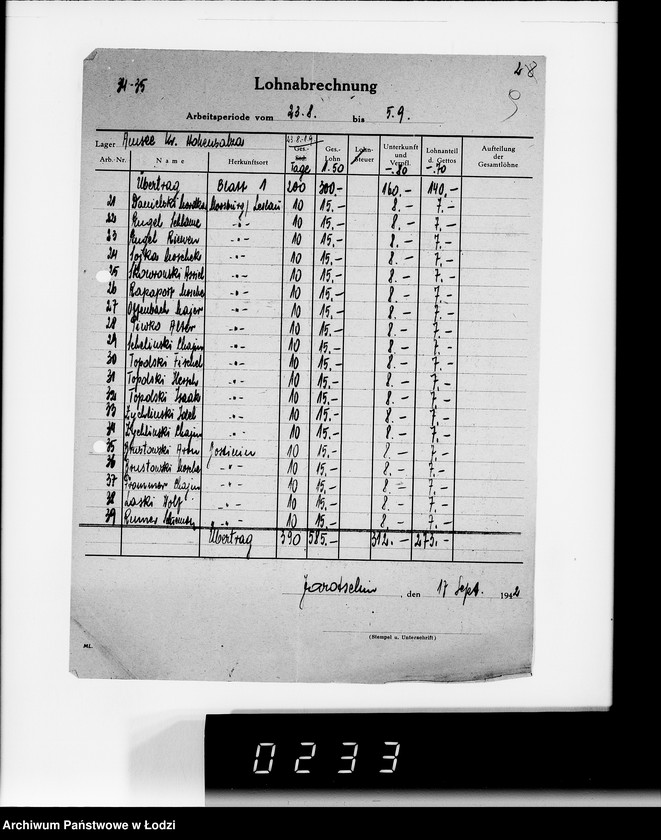 34-35
28
Lohnabrechnung
Arbeitsperiode vom 23.8. bis 5.9.
Lager Amsee Kr. Hohensalza
Arb.-Nr. Name Herkunftsort Ges. Tage Ges.-Lohn 1.50 Lohn-steuer Unterkunft und Verpfl. -.80 Lohnanteil d. Gettos -.70 Aufteilung der Gesamtlöhne
Übertrag Blatt 1 200 300,- 160.- 140.-
21 Danielski 10 15.- 8.- 7.-
22 Engel Schlame -"- 10 15.- 8.- 7.-
23 Engel Riewen -"- 10 15.- 8.- 7.-
24 Sojka Moschek -"- 10 15.- 8.- 7.-
25 Skowronski -"- 10 15.- 8.- 7.-
26 Rapaport -"- 10 15.- 8.- 7.-
27 Offenbach Majer -"- 10 15.- 8.- 7.-
28 Piwko Alter -"- 10 15.- 8.- 7.-
29 Chajm -"- 10 15.- 8.- 7.-
30 Topolski Fischel -"- 10 15.- 8.- 7.-
31 Topolski Hersch -"- 10 15.- 8.- 7.-
32 Topolski Isaak -"- 10 15.- 8.- 7.-
33 Zychlinski Idel -"- 10 15.- 8.- 7.-
34 Zychlinski Chajm -"- 10 15.- 8.- 7.-
35 Brustowski Aron 10 15.- 8.- 7.-
36 Brustowski -"- 10 15.- 8.- 7.-
37 Chajm -"- 10 15.- 8.- 7.-
38 Laski Wolf -"- 10 15.- 8.- 7.-
39 -"- 10 15.- 8.- 7.-
Übertrag 390 585.- 312.- 273.-
Jarotschin, den 17 Sept. 1942
(Stempel u. Unterschrift)
ML.
0233
Archiwum Państwowe w Łodzi